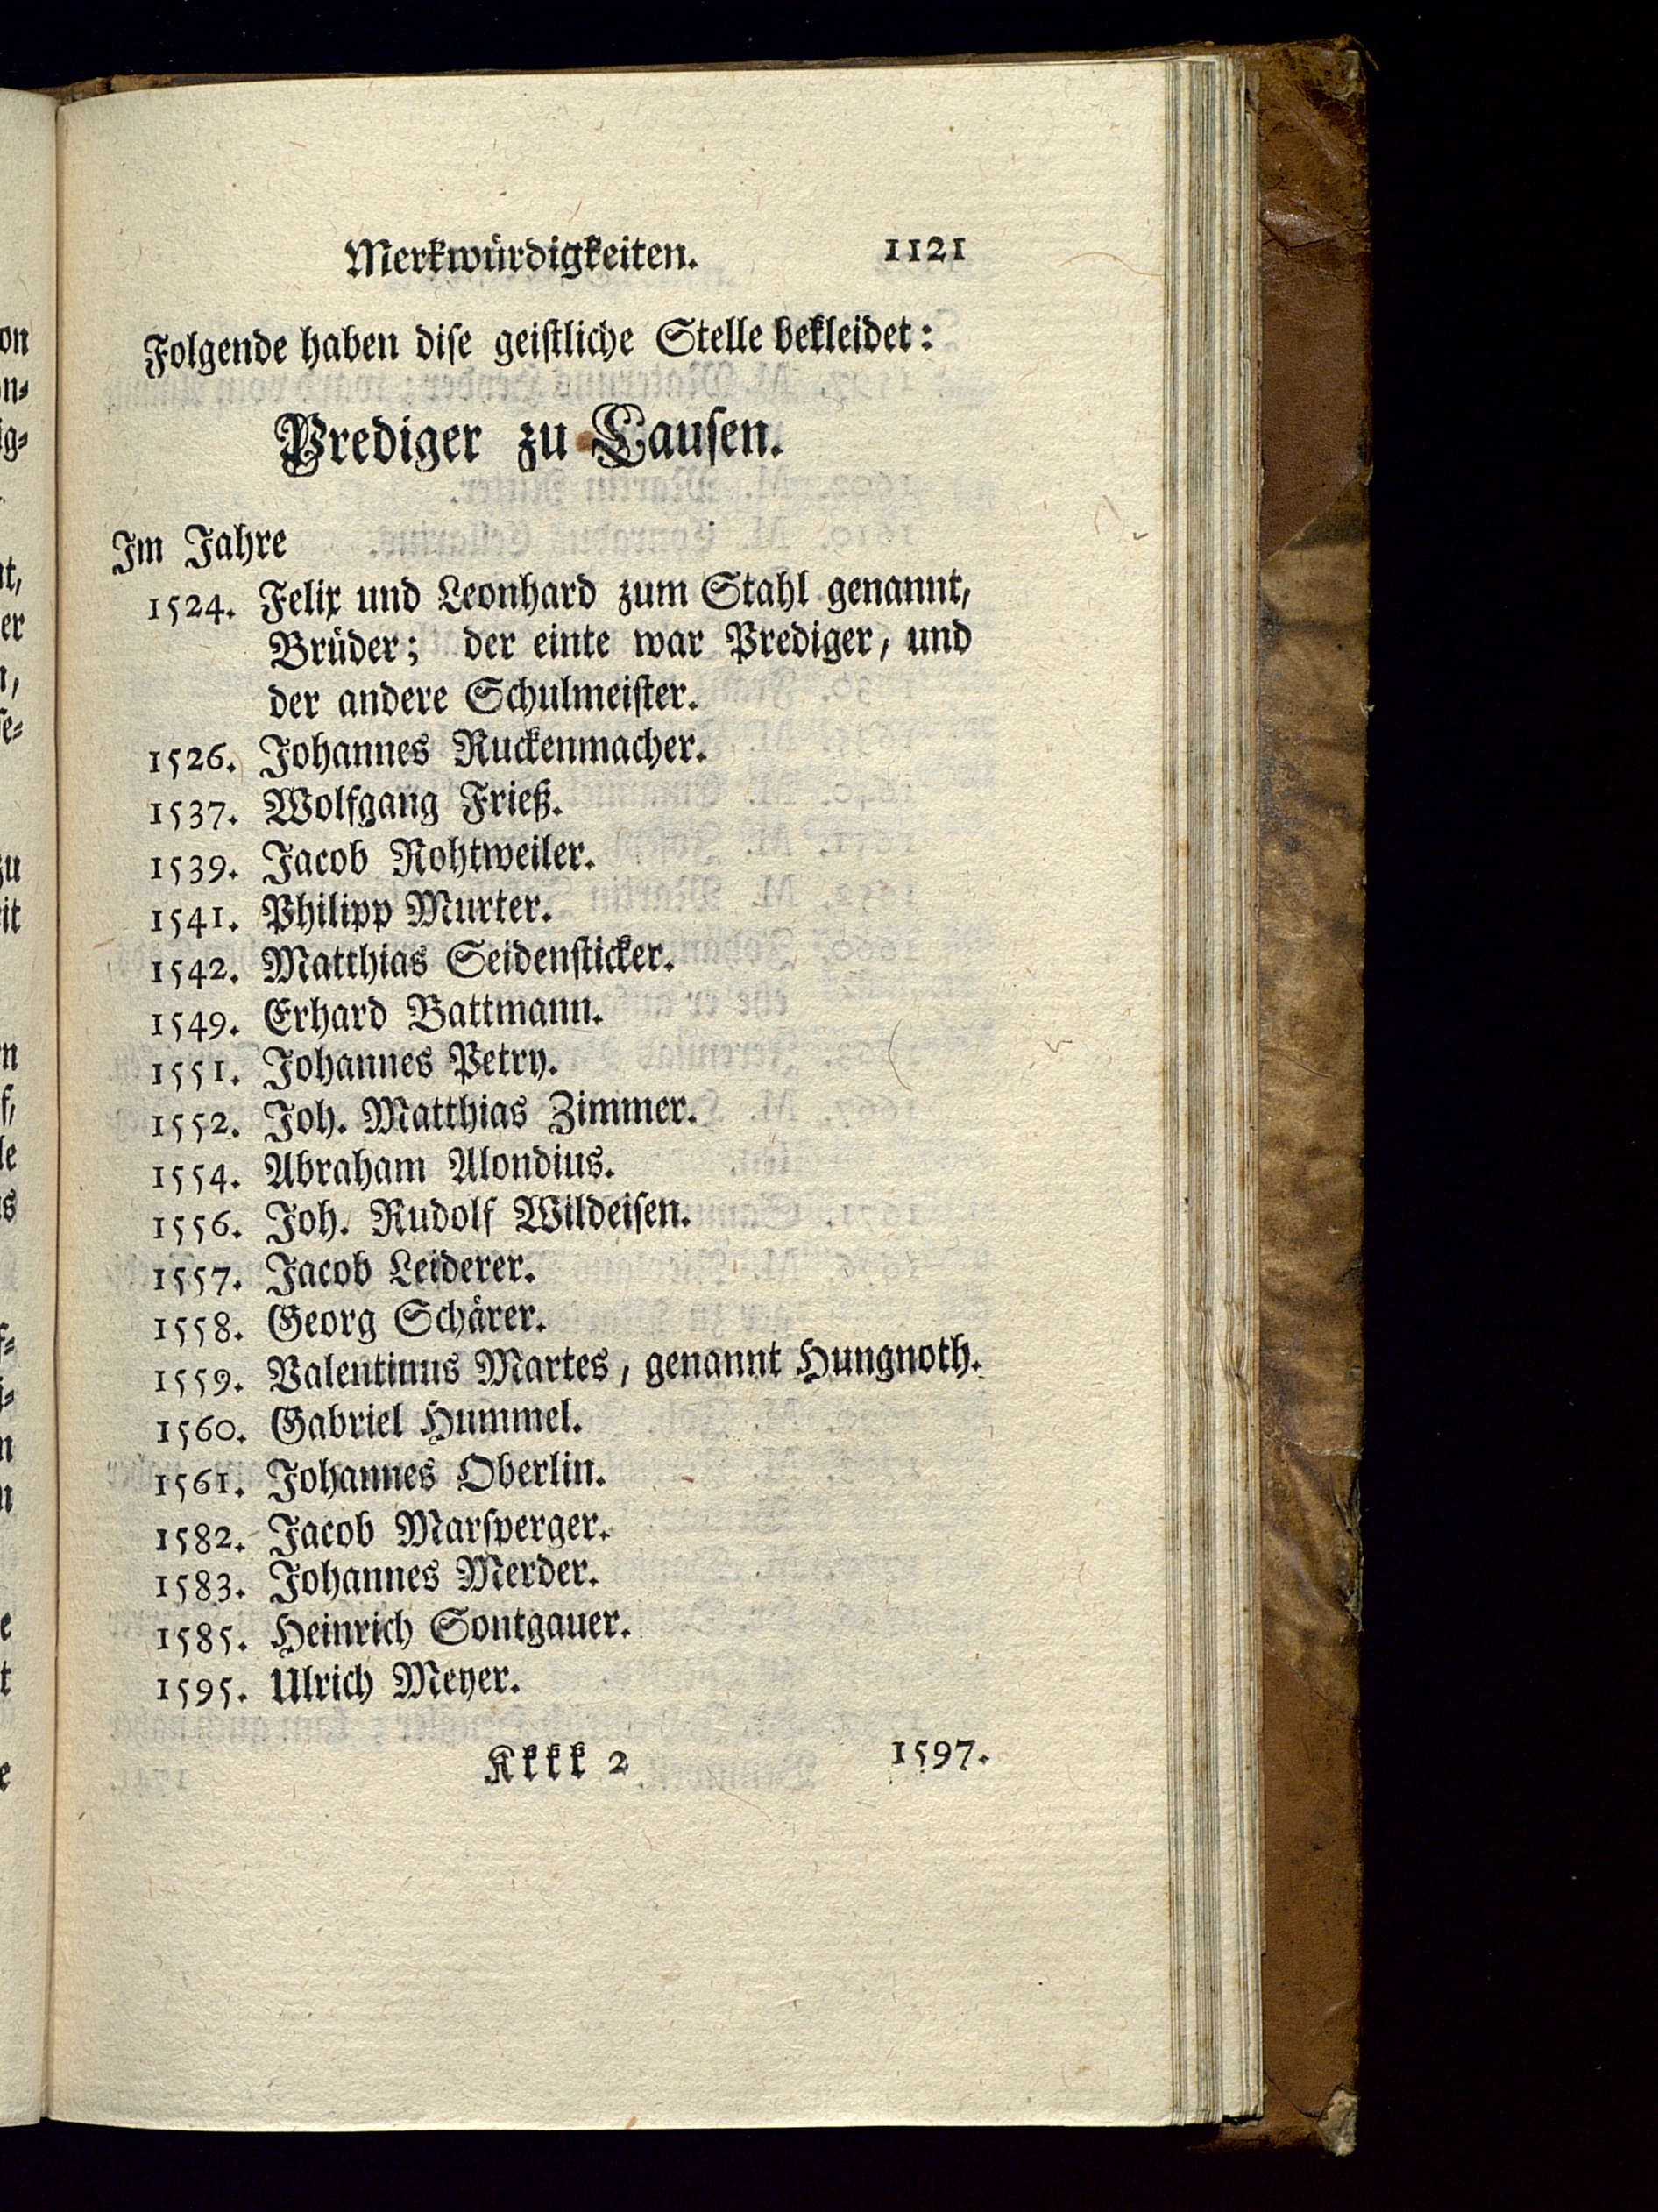 Merkwürdigkeiten. 1121
Folgende haben dise geistliche Stelle bekleidet:
Prediger zu Lausen.
Im Jahre
1524. Felix und Leonhard zum Stahl genannt,
Brüder; der einte war Prediger, und
der andere Schulmeister.
1526. Johannes Ruckenmacher.
1537. Wolfgang Frieß.
1539. Jacob Rohtweiler.
1541. Philipp Murter.
1542. Matthias Seidensticker.
1549. Erhard Battmann.
1551. Johannes Petry.
1552. Joh. Matthias Zimmer.
1554. Abraham Alondius.
1556. Joh. Rudolf Wildeisen.
1557. Jacob Leiderer.
1558. Georg Schärer.
1559. Valentinus Martes, genannt Hungnoth.
1560. Gabriel Hummel.
1561. Johannes Oberlin.
1582. Jacob Marsperger.
1583. Johannes Merder.
1585. Heinrich Sontgauer.
1595. Ulrich Meyer.
Kkkk 2 1597.